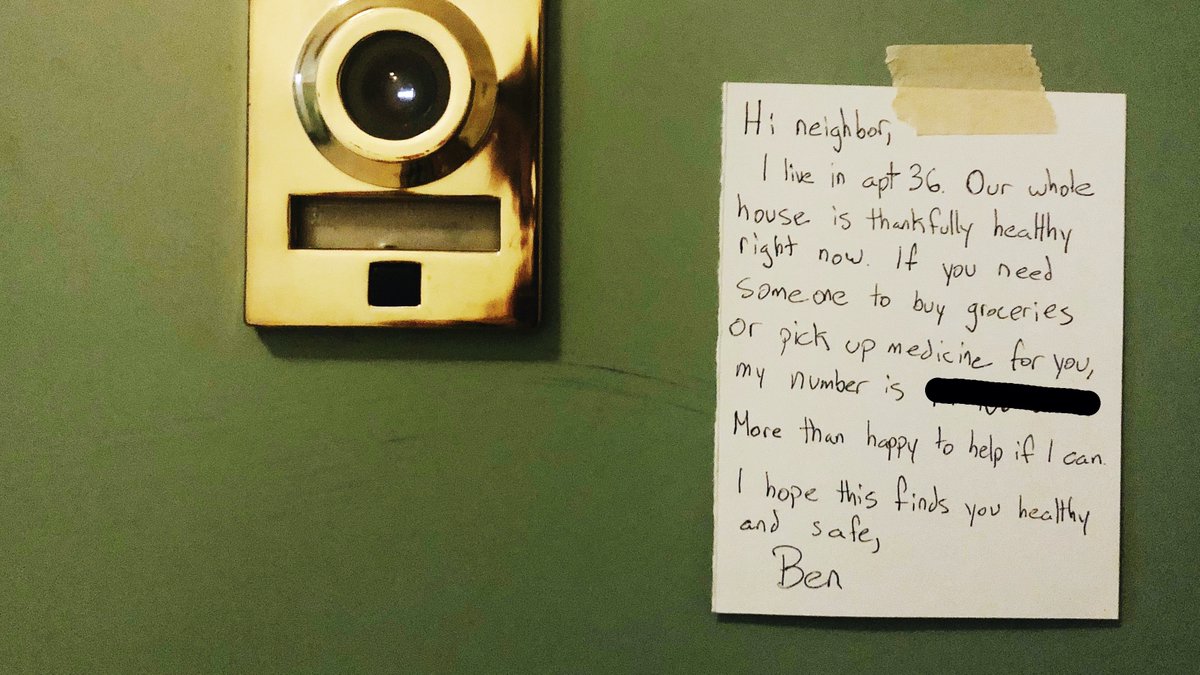 Hi neighbor,
I live in apt 36. Our whole
house is thankfully healthy
right now. If you need
someone to buy groceries
or pick up medicine for you,
my number is
More than happy to help if I can.
I hope this finds you healthy
and safe,
Ben